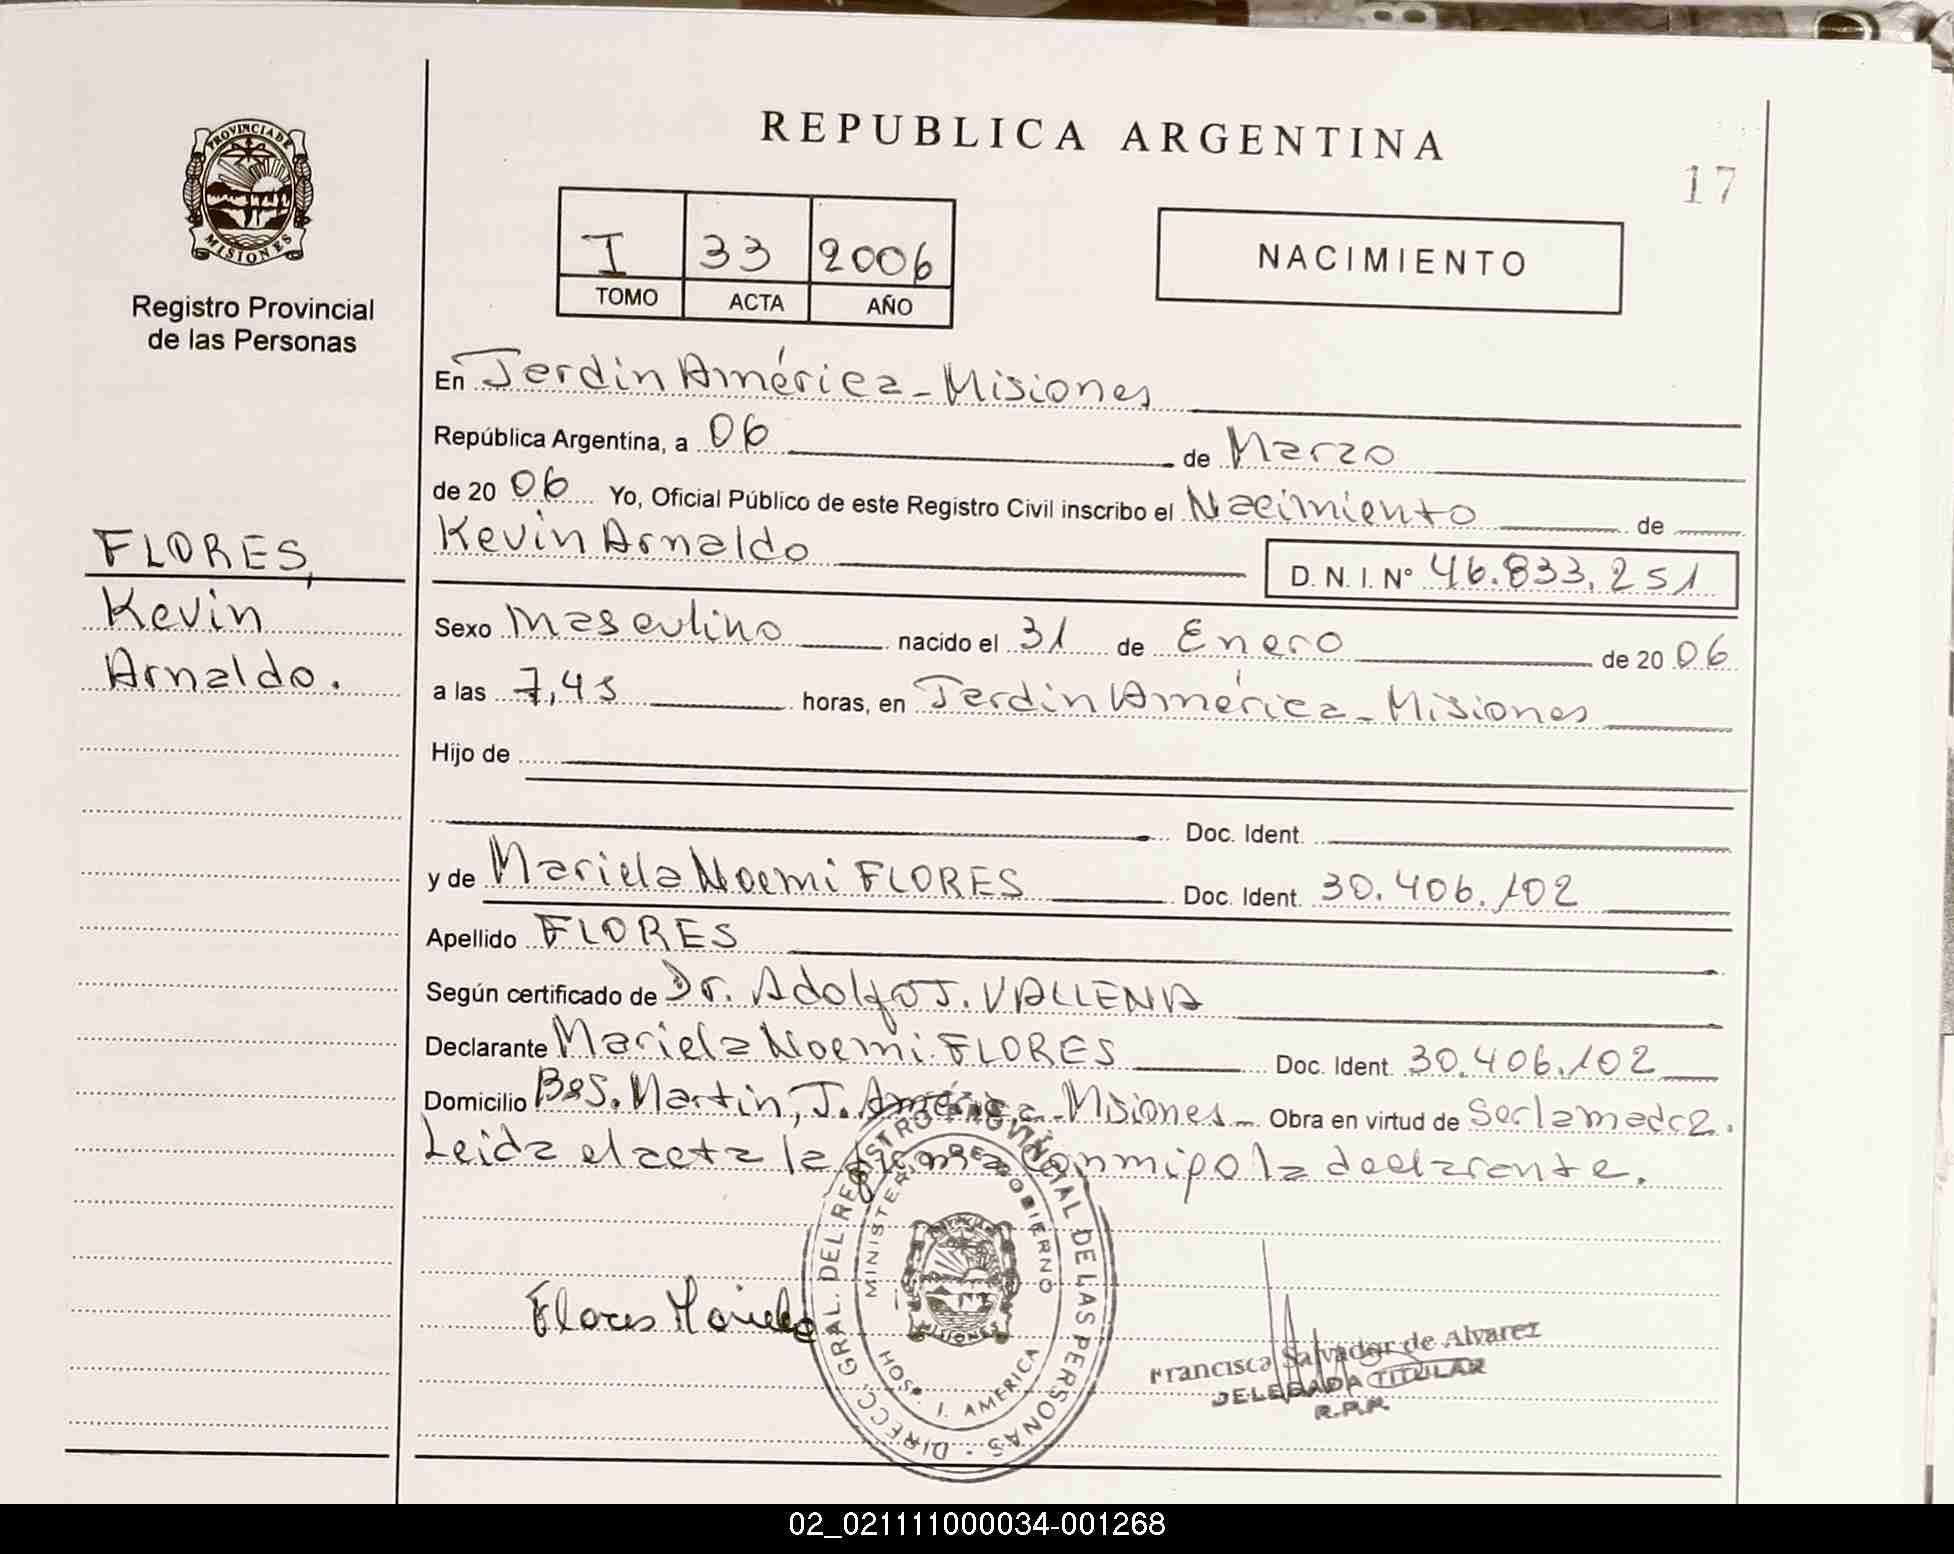 REPUBLICA ARGENTINA
17
PROVINCIA DE
MISIONES
Registro Provincial
de las Personas
I 33 2006
TOMO ACTA AÑO
NACIMIENTO
En Jardin América - Misiones
República Argentina, a 06 de Marzo
de 20 06 Yo, Oficial Público de este Registro Civil inscribo el Nacimiento de
Kevin Arnaldo
D. N. I. Nº 46.833.251
FLORES,
Kevin
Arnaldo.
Sexo Masculino nacido el 31 de Enero de 20 06
a las 7,45 horas, en Jardin América - Misiones
Hijo de
Doc. Ident.
y de Mariela Noemi FLORES Doc. Ident. 30.406.102
Apellido FLORES
Según certificado de Dr. Adolfo J. VALLENA
Declarante Mariela Noemi FLORES Doc. Ident. 30.406.102
Domicilio BºS. Martin, J. América - Misiones - Obra en virtud de Ser la madre.
Leida el acta la firma conmigo la declarante.
Flores Mariela
DIRECC. GRAL. DEL REGISTRO PROVINCIAL DE LAS PERSONAS
MINISTERIO DE GOBIERNO
MISIONES
HOSP. J. AMERICA
Francisca Salvador de Alvarez
DELEGADA TITULAR
R.P.P.
02_021111000034-001268